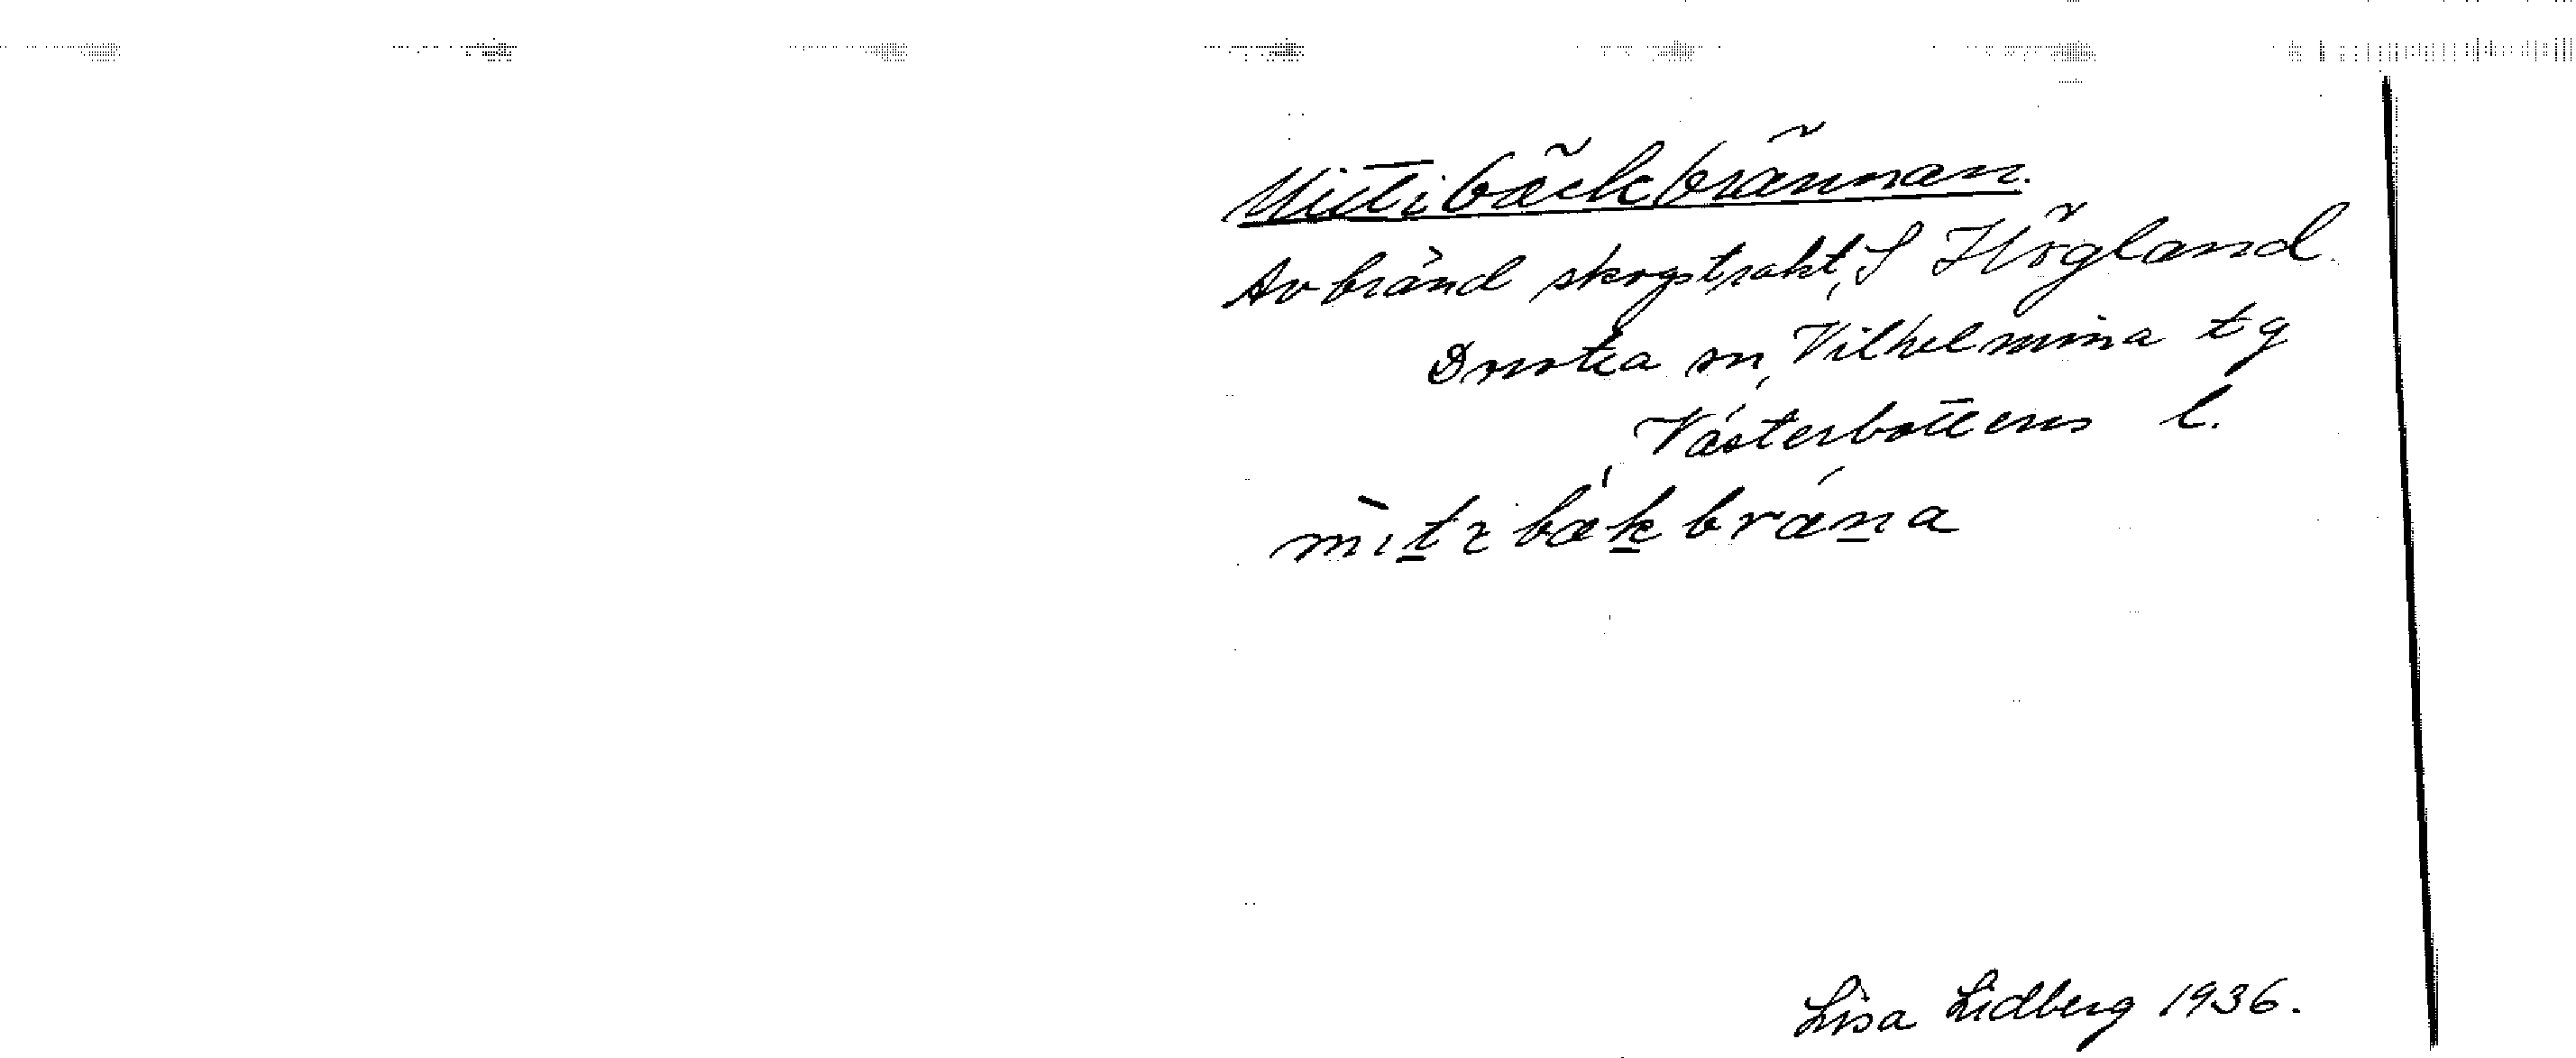 Mittibäckbrännan.
Avbränd skogstrakt, S Högland.
Dorotea sn, Vilhelmina tg
Västerbottens l.
mìt̲ɪbæk̲brǽn̲a
Lisa Lidberg 1936.